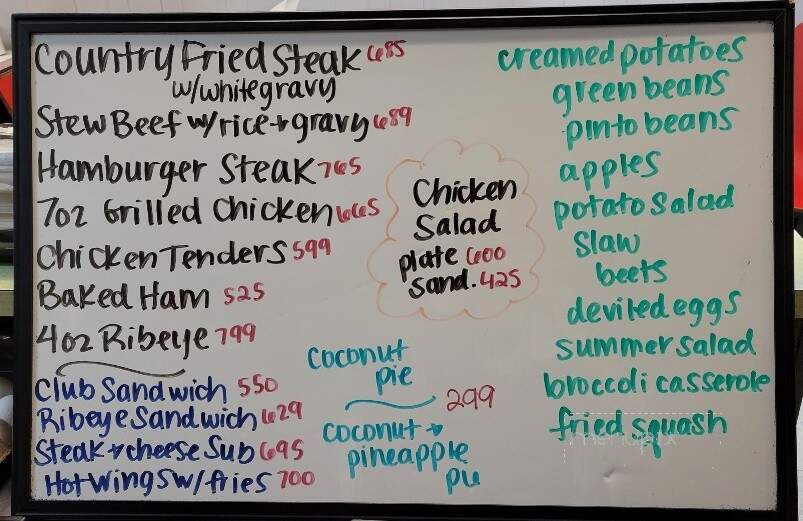 Country Fried Steak 685
w/white gravy
Stew Beef w/rice + gravy 689
Hamburger Steak 765
7oz Grilled Chicken 665
Chicken Tenders 599
Baked Ham 525
4oz Ribeye 799
Club Sandwich 550
Ribeye Sandwich 629
Steak + cheese Sub 695
Hot Wings w/fries 700
Chicken
Salad
plate 600
sand. 425
coconut
pie
299
coconut +
pineapple
pie
creamed potatoes
green beans
pinto beans
apples
potato salad
slaw
beets
deviled eggs
summer salad
broccoli casserole
fried squash